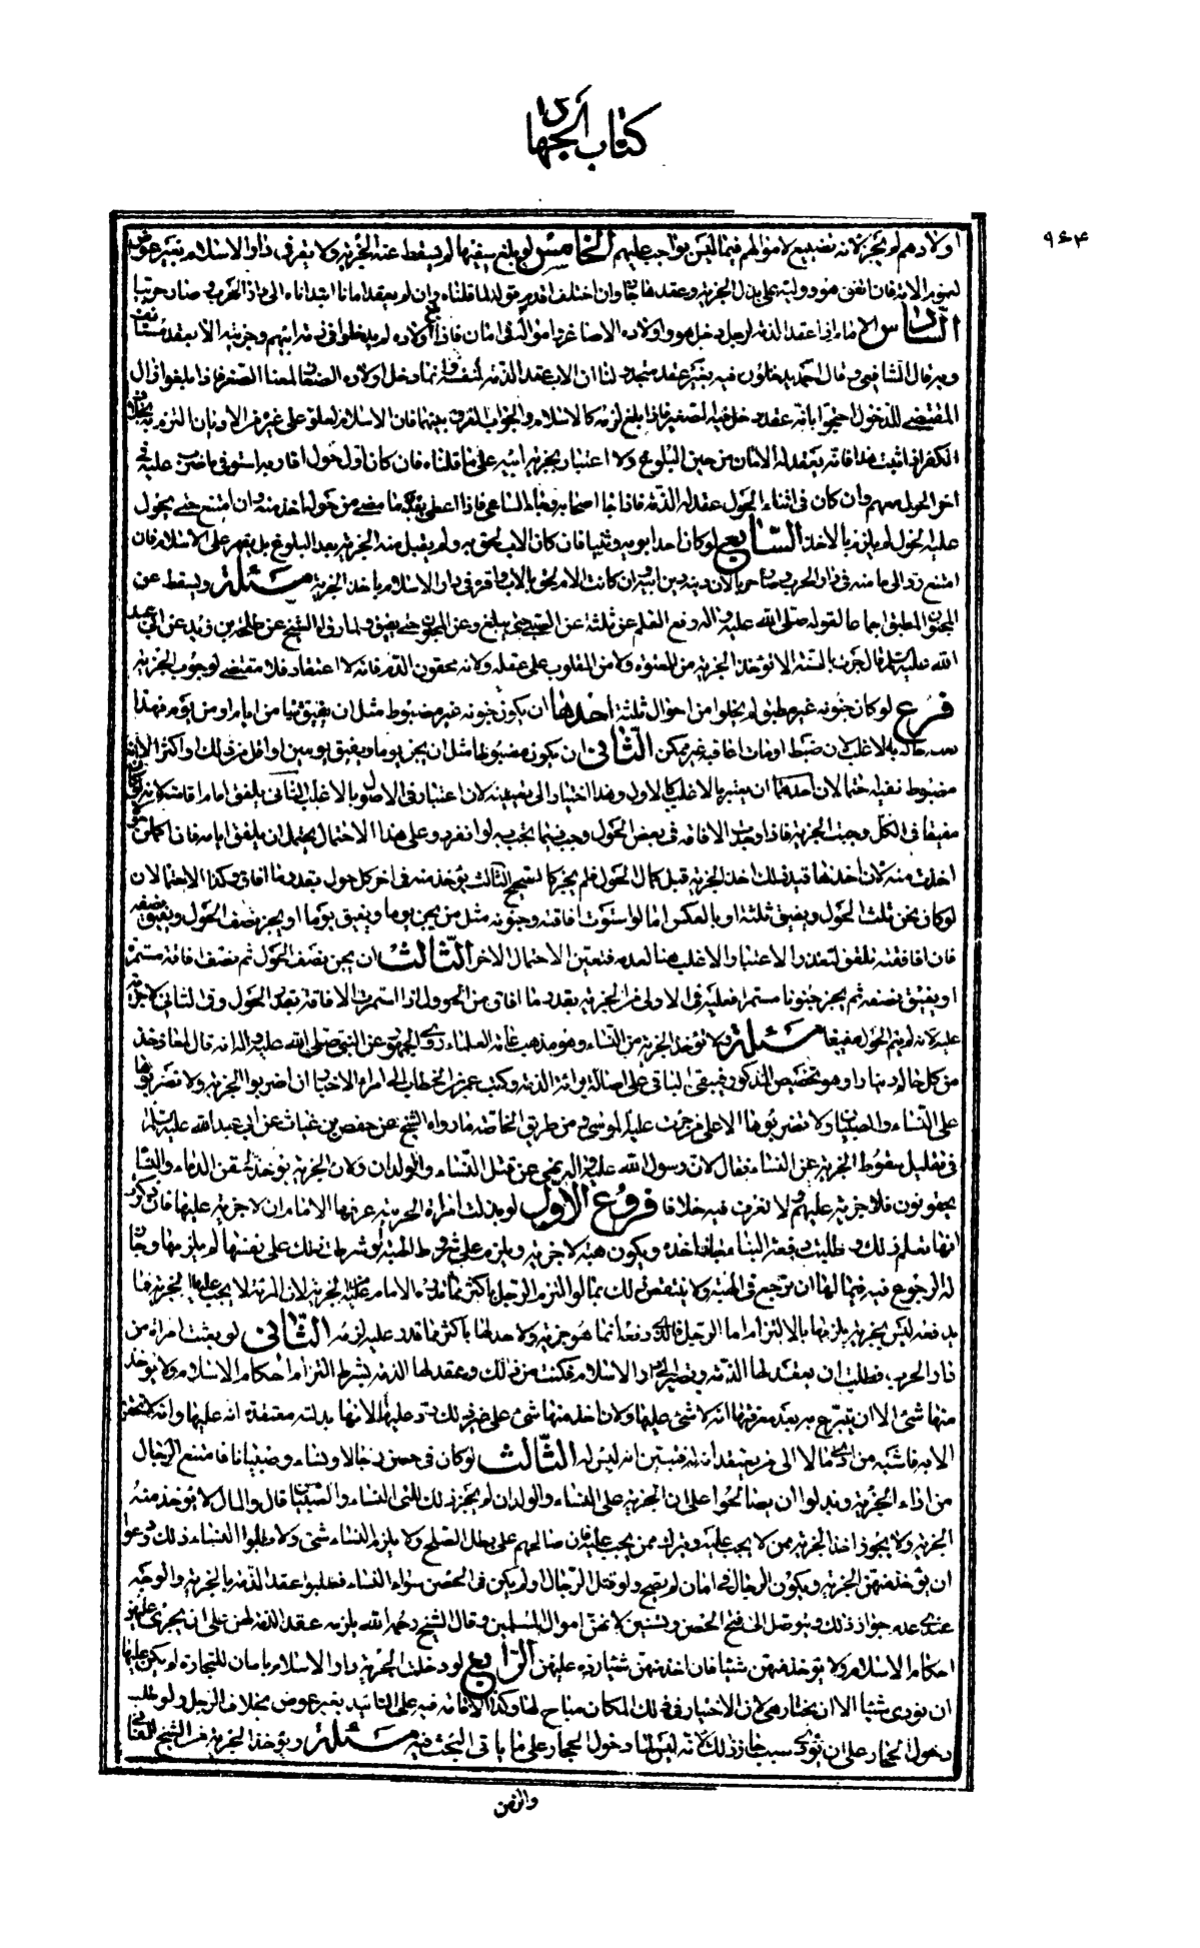 كتاب الجهاد
٩٦٤
اولادهم لم يجز لانه تضييع لاموالهم فيما ليس بواجب عليهم الخامس لو بلغ سفيها لم يسقط عنه الجزية ولا يقر في دار الاسلام بغير عوض
لعموم الاية فان اتفق هو ووليه على بذل الجزية وعقدها جاز وان اختلفا قدم قوله لما قلناه وان لم يعقد امانا نبذناه الى دار الحرب وصار حربيا
السادس الامام اذا عقد الذمة لرجل دخل هو واولاده الاصاغر وامواله في امان فاذا بلغ اولاده لم يدخلوا في ذمة ابيهم وجزيته الا بعقد مستانف
وبه قال الشافعي وقال احمد يدخلون فيه بغير عقد متجدد لنا ان الاب عقد الذمة لنفسه وانما دخل اولاده الصغار لمعنى الصغر فاذا بلغوا زال
المقتضي للدخول احتجوا بانه عقد دخل فيه الصغير فاذا بلغ لزمه كالاسلام والجواب الفرق بينهما فان الاسلام يعلو على غيره من الاديان التزم به بخلاف
الكفر اذا ثبت هذا فانه يعقد له الامان من حين البلوغ ولا اعتبار بجزية ابيه على ما قلناه فان كان اول حول اقاربه استوفي
اخر الحول معهم وان كان في اثناء الحول عقد له الذمة فاذا جاء اصحابه وجاء الساعي فاذا اعطى بقدر ما مضى من حوله اخذ منه وان امتنع حتى يحول
عليه الحول لم يلزم بالاخذ السابع لو كان احد ابويه وثنيا فان كان الاب لحق به ولم يقبل منه الجزية بعد البلوغ بل يقهر على الاسلام فان
امتنع رد الى مامنه في دار الحرب وصار حربا وان كانت الام لحق بالاب واقر في دار الاسلام باخذ الجزية مسئلة ويسقط عن
المجنون المطبق اجماعا لقوله صلى الله عليه واله رفع القلم عن ثلثة عن الصبي حتى يبلغ وعن المجنون حتى يفيق ولما رواه الشيخ عن طلحة بن زيد عن ابي عبد
الله عليه السلام قال جرت السنة الا تؤخذ الجزية من المعتوه ولا من المغلوب على عقله ولانه محقون الدم فانه لا اعتقاد فلا مقتضى لوجوب الجزية
فرع لو كان جنونه غير مطبق لم يخلوا من احوال ثلثة احدها ان يكون جنونه غير مضبوط مثل ان يفيق من ايام او من يوم فهذا
يعتبر حاله بالاغلب لان ضبط اوقات افاقته غير ممكن الثاني ان يكون مضبوطا مثل ان يجن يوما ويفيق يومين او اقل من ذلك او اكثر الا انه
مضبوط ففيه احتمالان احدهما ان يعتبر بالاغلب كالاول وهذا اختيار ابي حنيفة لان اعتبار في الاصول بالاغلب الثاني يلفق ايام افاقته لانه لو كان
مفيقا في الكل وجبت الجزية فاذا وجدت الافاقة في بعض الحول وجب فيما يجب به لو انفرد وعلى هذا الاحتمال يحتمل ان يلفق ايامه فاذا كملت حولا
اخذت منه لان اخذها قبل ذلك اخذ الجزية قبل كمال الحول فلم يجز كالصحيح الثالث يؤخذ منه في اخر كل حول بقدر ما افاق وكذا الاحتمالان
لو كان يجن ثلث الحول ويفيق ثلثيه او بالعكس اما لو استوت افاقته وجنونه مثل من يجن يوما ويفيق يوما او يجن نصف الحول ويفيق نصفه
فان افاقته تلفق لتعذر الاعتبار الاغلب هنا لعدمه فتعين الاحتمال الاخر الثالث ان يجن نصف الحول ثم نصف افاقة مستمرة
او يفيق نصفه ثم يجن جنونا مستمرا فعليه في الاولى من الجزية بقدر ما افاق من الحول اذا استمرت الافاقة بعد الحول وفي الثاني لا جزية
عليه لانه لم يتم الحول مفيقا مسئلة ولا تؤخذ الجزية من النساء وهو مذهب عامة العلماء روى الجمهور عن النبي صلى الله عليه واله انه قال لمعاذ خذ
من كل حالم دينارا وهو تخصيص الذكور فيبقى الباقي على اصالة براءة الذمة وكتب عمر بن الخطاب الى امراء الاجناد ان اضربوا الجزية ولا تضربوها
على النساء والصبيان ولا تضربوها الا على من جرت عليه الموسى ومن طريق الخاصة ما رواه الشيخ عن حفص بن غياث عن ابي عبد الله عليه السلام
في تعليل سقوط الجزية عن النساء فقال لان رسول الله صلى الله عليه واله نهى عن قتل النساء والولدان ولان الجزية تؤخذ لحقن الدماء والنساء
محقونون فلا جزية عليهم لا نعرف فيه خلافا فروع الاول لو بذلت امراة الجزية عرفها الامام ان لا جزية عليها فان ذكرت
انها تعلم ذلك وطلبت دفعه الينا جاز اخذه ويكون هبة لا جزية ويلزم على شروط الهبة لو شرطت ذلك على نفسها لم يلزمها وجاز
له الرجوع فيه فيما لها ان ترجع في الهبة ولا ينتقض ذلك بما لو التزم الرجل باكثر مما قدره الامام عليه الجزية لان المراة لا يجب عليها الجزية فما
يدفعه ليس بجزية يلزمها بالالتزام اما الرجل فالذي دفعه انما هو جزية ولا حد لها باكثر مما قدر عليه لزمه الثاني لو بعثت امراة من
دار الحرب فطلبت ان يعقد لها الذمة وتصير الى دار الاسلام مكنت من ذلك وعقد لها الذمة بشرط التزام احكام الاسلام ولا يؤخذ
منها شيئ الا ان تتبرع به بعد معرفتها انه لا شيئ عليها ولان اخذ منها شيئ على غير ذلك رد عليها لانها بذلته معتقدة انه عليها وانه لا تحقن
الا به فاشبه من ادى مالا الى من يعتقد انه له فتبين انه ليس له الثالث لو كان في حصن رجالا ونساء وصبيانا فامتنع الرجال
من اداء الجزية وبذلوا ان يصالحوا على ان الجزية على النساء والولدان لم يجز ذلك لان النساء والصبيان قال والمال لا يؤخذ منه
الجزية ولا يجوز اخذ الجزية ممن لا يجب عليه وتترك ممن يجب عليه فان صالحهم على بطل الصلح ولا يلزم النساء شيئ ولو طلبوا النساء ذلك ودعوا
ان يؤخذ منهن الجزية ويكون الرجال في امان لم يصح ولو قتل الرجال او لم يكن في الحصن سواء النساء فطلبوا عقد الذمة بالجزية والوجه
عندي عدم جواز ذلك ويتوصل الى فتح الحصن ويسبين لانهن اموال المسلمين وقال الشيخ رحمه الله يلزمه عقد الذمة لهن على ان يجري عليهن
احكام الاسلام ولا يؤخذ منهن شيئا فان اخذ منهن شيئا رده عليهن الرابع لو دخلت الحربية دار الاسلام بامان للتجارة لم يكن عليها
ان تؤدي شيئا الا ان تختاره هي لان الاختيار في ذلك المكان مباح لها وكذا الاقامة فيه على التابيد بغير عوض بخلاف الرجل ولو طلبت
دخول الحجاز على ان تؤدي سببا جاز ذلك لانه ليس لها دخول الحجاز وعلى ما ياتي البحث فيه مسئلة ويؤخذ الجزية من الشيخ الفاني
والزمن